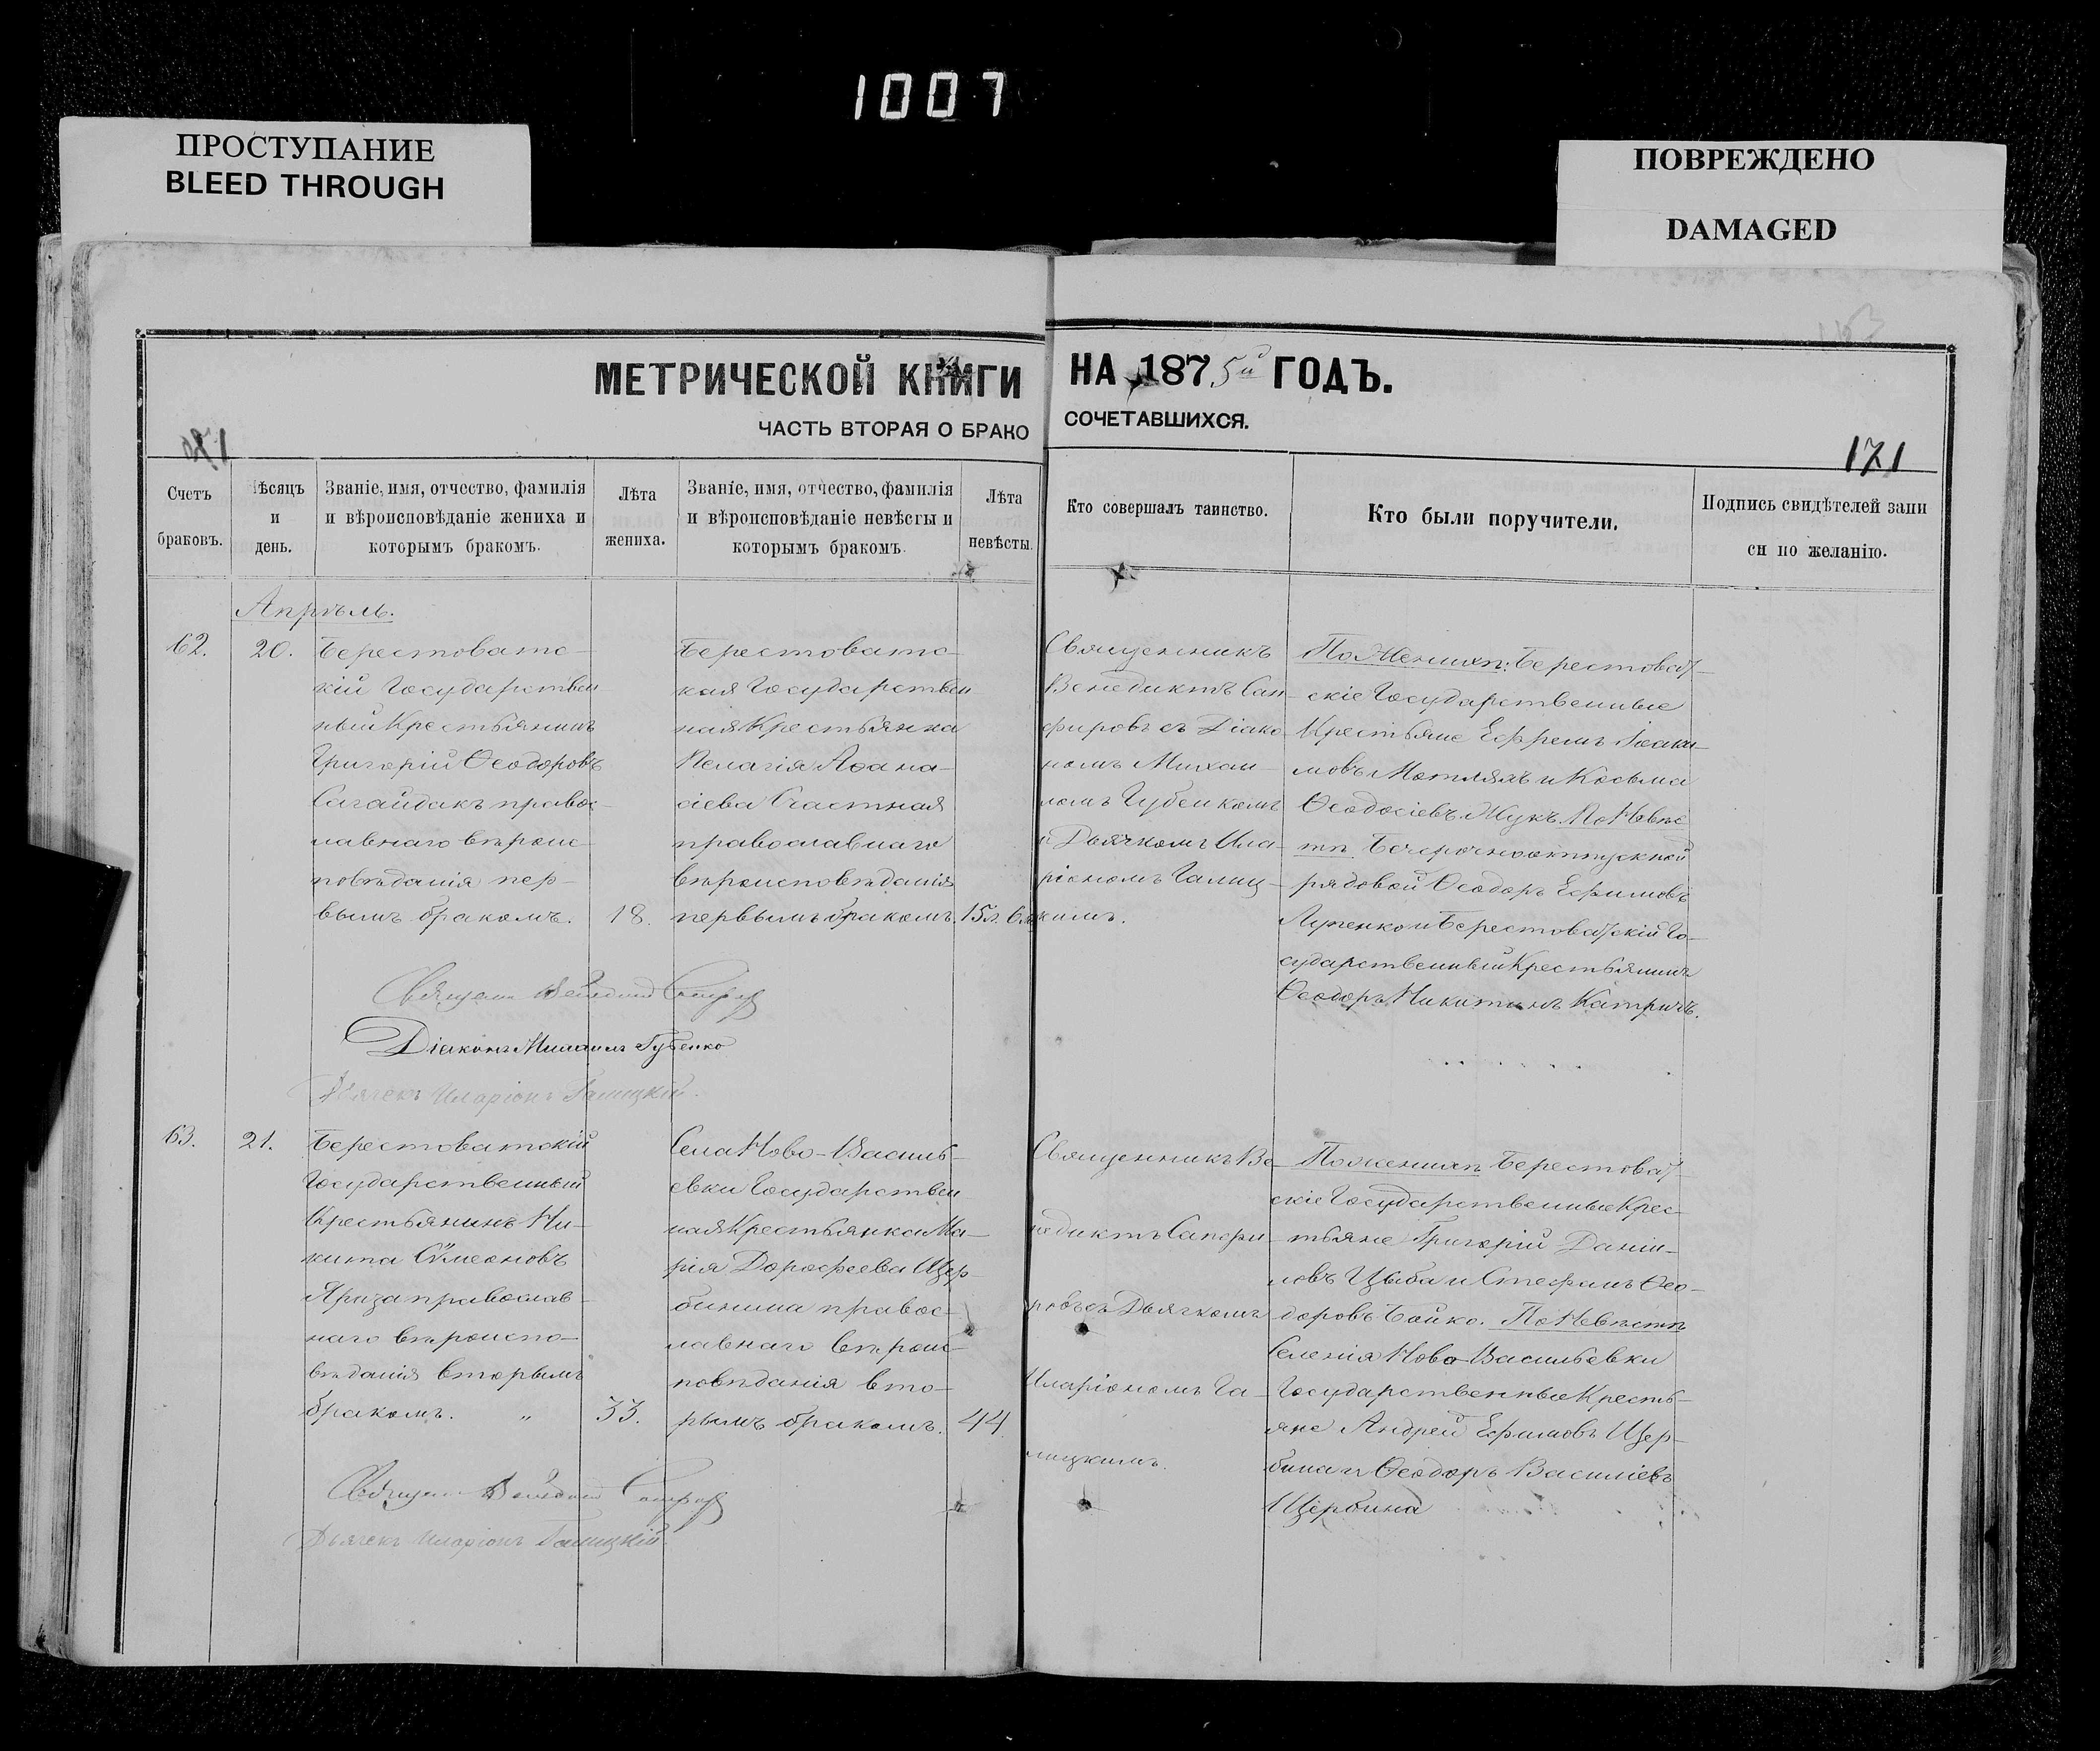 1007
ПРОСТУПАНИЕ
BLEED THROUGH
ПОВРЕЖДЕНО
DAMAGED
МЕТРИЧЕСКОЙ КНИГИ НА 1875й ГОДЪ.
ЧАСТЬ ВТОРАЯ О БРАКО СОЧЕТАВШИХСЯ.
171
Счетъ
браковъ.
Мѣсяцъ
и
день.
Званіе, имя, отчество, фамилія
и вѣроисповѣданіе жениха и
которымъ бракомъ.
Лѣта
жениха.
Званіе, имя, отчество, фамилія
и вѣроисповѣданіе невѣсты и
которымъ бракомъ.
Лѣта
невѣсты.
Кто совершалъ таинство.
Кто были поручители.
Подпись свидѣтелей запи
си по желанію.
Апрѣль.
62.
20.
Берестоватс-
кій Государствен
ный Крестьянинъ
Григорій Ѳеодоровъ
Сагайдакъ правос-
лавнаго вѣроис-
повѣданія пер-
вымъ бракомъ.
18.
Берестоватс-
кая Государствен
ная Крестьянка
Пелагія Аѳана-
сіева Счастная
православнаго
вѣроисповѣданія
первымъ бракомъ.
15л. 6м
Священникъ
Венедиктъ Сап-
фировъ съ Діако-
номъ Михаи-
ломъ Губенкомъ
и Дьячкомъ Ила-
ріономъ Галиц-
кимъ.
По Женихѣ: Берестоват-
скіе Государственные
Крестьяне Ефремъ Іоаки-
мовъ Мотляхъ и Косьма
Ѳеодосіевъ Жукъ. По Невѣс
тѣ. Безсрочноотпускной
рядовой Ѳеодоръ Ефимовъ
Лупенко и Берестоватскій Го-
сударственный Крестьянинъ
Ѳеодоръ Никитинъ Катричъ.
Священн Венедикт Сапфир
Діаконъ Михаилъ Губенко
Дьячекъ Иларіонъ Галицкій.
63.
21.
Берестоватскій
Государственный
Крестьянинъ Ни-
кита Сѵмеоновъ
Яриза православ-
наго вѣроиспо-
вѣданія вторымъ
бракомъ. "
33.
Села Ново-Василь-
евки Государствен
ная Крестьянка Ма-
рія Дорофеева Щер-
бинина правос-
лавнаго вѣроис-
повѣданія вто-
рымъ бракомъ.
44
Священникъ Ве-
недиктъ Сапфи-
ровъ съ Дьячкомъ
Иларіономъ Га-
лицкимъ.
По женихѣ Берестоват-
скіе Государственные Крес-
тьяне Григорій Даніи-
ловъ Цыба и Стефанъ Ѳео-
доровъ Бойко. По Невѣстѣ
Селенія Ново-Васильевки
Государственные Кресть-
яне Андрей Ефимовъ Щер-
бина и Ѳеодоръ Василіевъ
Щербина
Священн Венедикт Сапфир
Дьячекъ Иларіонъ Галицкій.